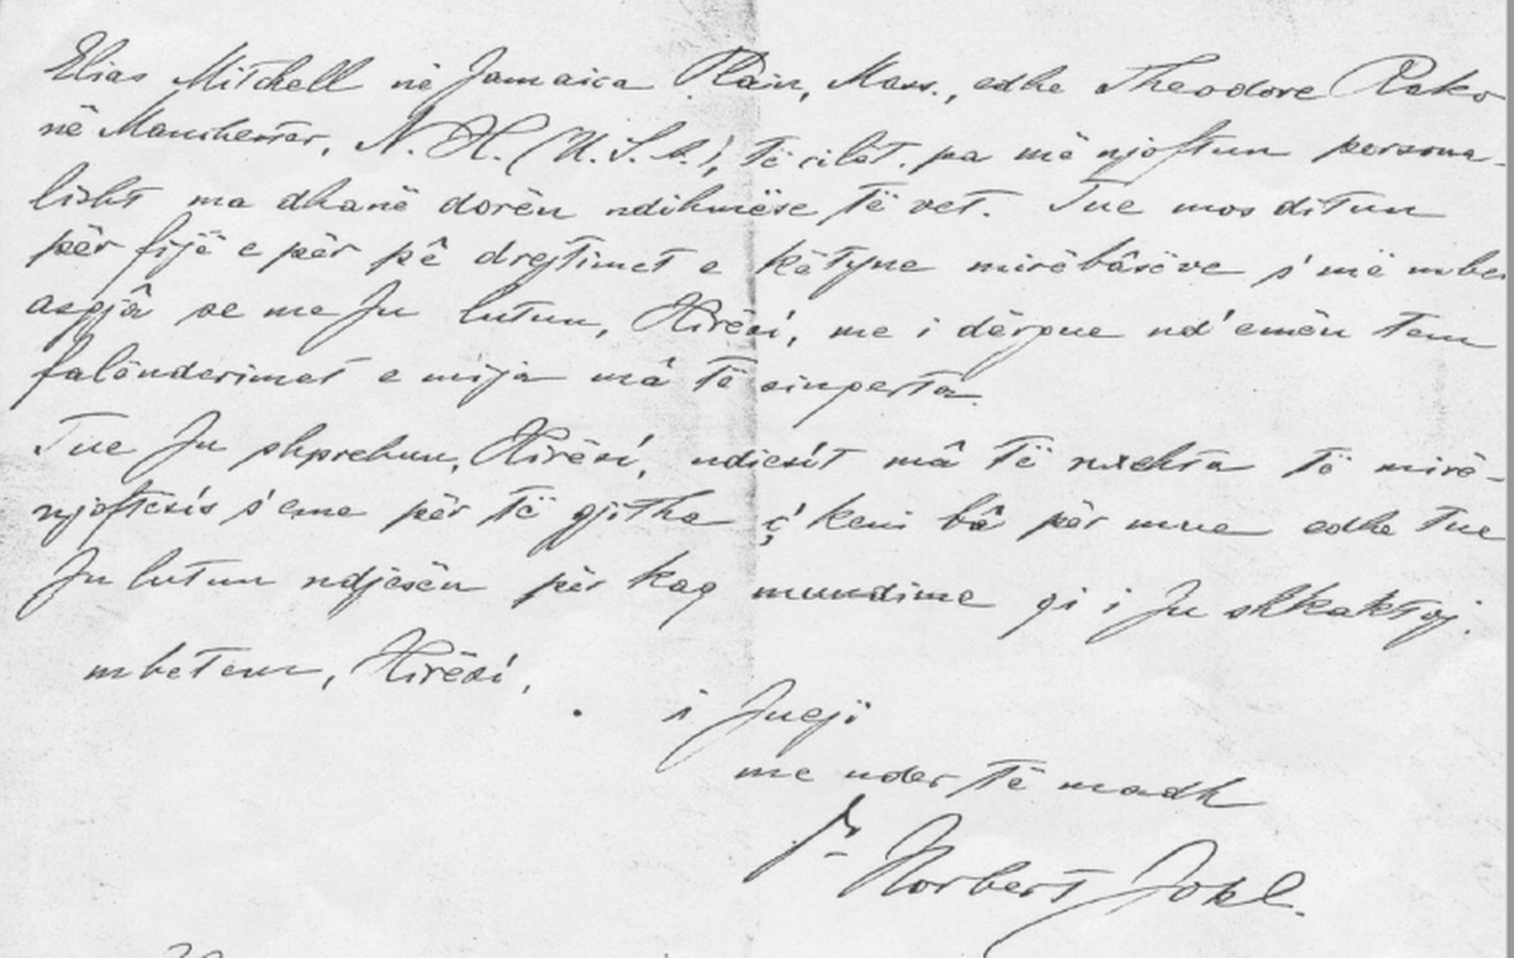 Elias Mitchell në Jamaica Plain, Mass., edhe Theodore Rako
në Manchester, N. H. (U. S. A.), të cilët, pa më njoftun persona-
lisht ma dhanë dorën ndihmëse të vet. Tue mos ditun
për fijë e për pê drejtimet e këtyne mirëbâsëve s'më mbe
asgjâ se me Ju lutun, Hirësi, me i dërgue nd'emën tem
falënderimet e mija mâ të sinqerta.
Tue Ju shprehun, Hirësi, ndiesít mâ të nxehta të mirë-
njoftesís s'eme për të gjitha ç'keni bâ për mue edhe tue
Ju lutun ndjesën për kaq mundime qi i Ju shkaktoj.
mbetem, Hirësi,
i Juejï
me nder të madh
Dr Norbert Jokl.